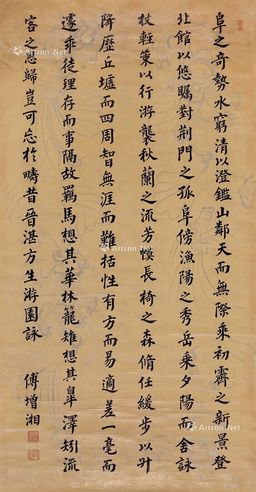 阜之奇勢水窮清以澄鑑山鄰天而無際乘初霽之新景登
北館以悠矚對荆門之孤阜傍漁陽之秀岳乘夕陽而含詠
杖輕策以行游襲秋蘭之流芳幙長椅之森脩任緩步以升
降歷丘墟而四周智無涯而難括性有方而易適差一毫而
遽乖徒理存而事隔故羈馬想其華林籠雉想其皋澤矧流
客之思歸豈可忘於疇昔晉湛方生游園詠
傅增湘